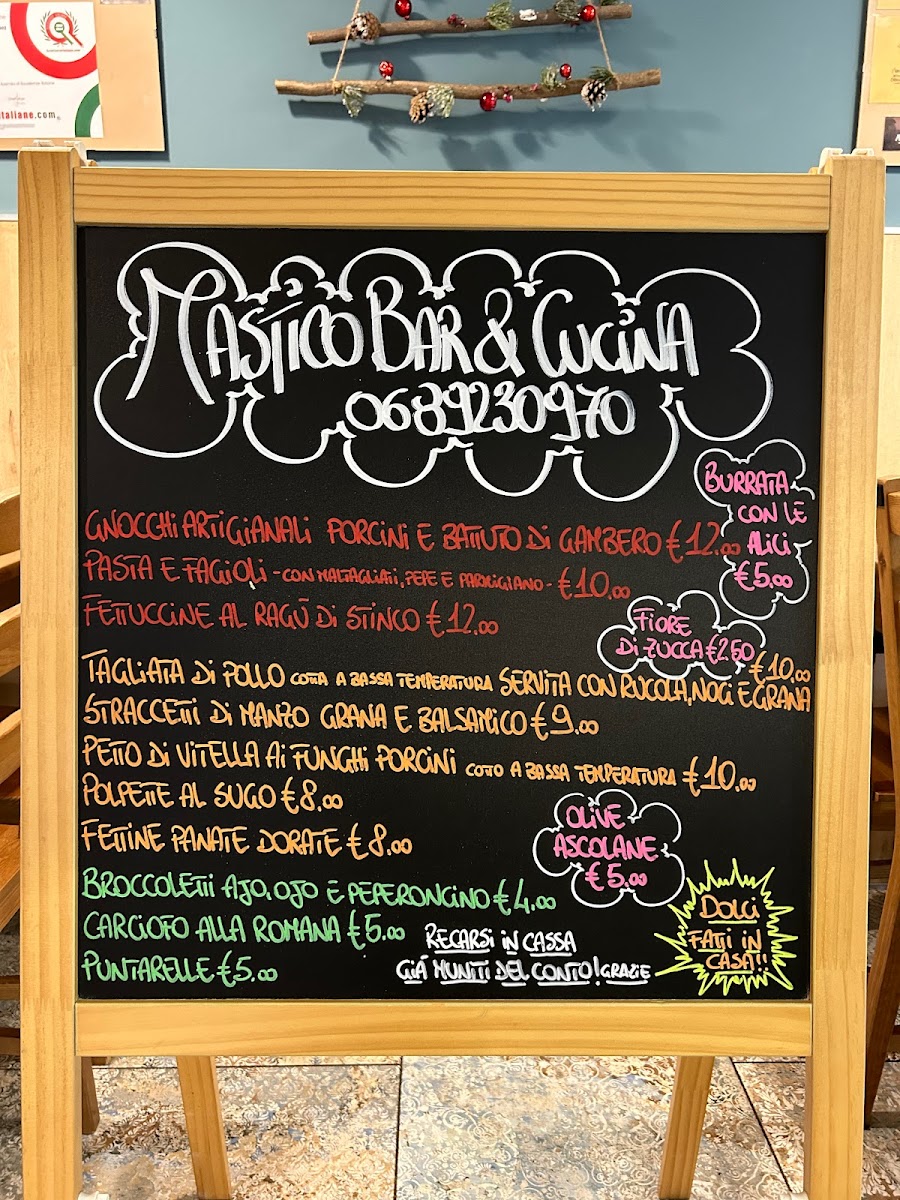 italiane.com
MASTICO BAR & CUCINA
0689230970
BURRATA
CON LE
ALICI
€5,00
GNOCCHI ARTIGIANALI PORCINI E BATTUTO DI GAMBERO €12.00
PASTA E FAGIOLI - CON MALTAGLIATI, PEPE E PARMIGIANO - €10,00
FETTUCCINE AL RAGÙ DI STINCO €12.00
FIORE
DI ZUCCA €2.50
€10,00
TAGLIATA DI POLLO COTTA A BASSA TEMPERATURA SERVITA CON RUCOLA, NOCI E GRANA
STRACCETTI DI MANZO GRANA E BALSAMICO €9.00
PETTO DI VITELLA AI FUNGHI PORCINI COTTO A BASSA TEMPERATURA €10,00
POLPETTE AL SUGO €8,00
FETTINE PANATE DORATE €8.00
OLIVE
ASCOLANE
€5,00
BROCCOLETTI AJO, OJO E PEPERONCINO €4.00
CARCIOFO ALLA ROMANA €5.00
PUNTARELLE €5.00
RECARSI IN CASSA
GIÁ MUNITI DEL CONTO! GRAZIE
DOLCI
FATTI IN
CASA!!